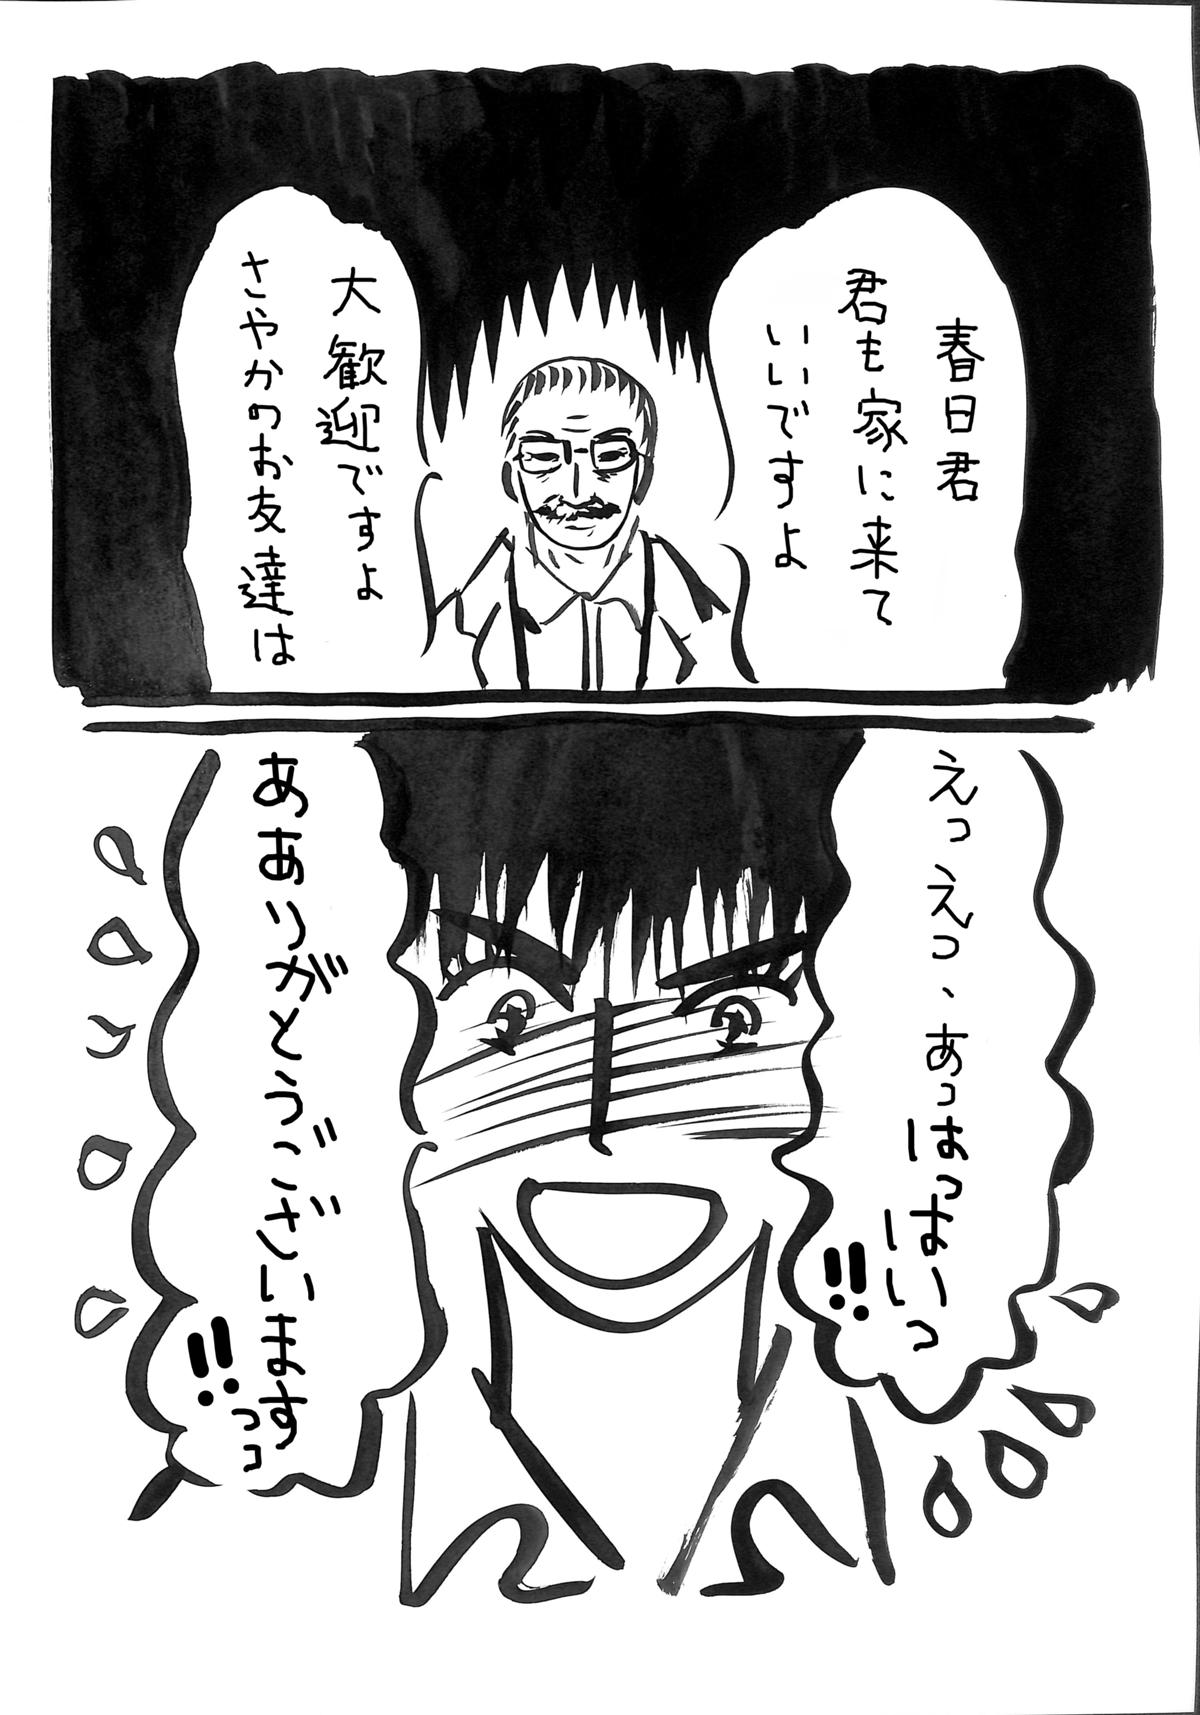 春日君
君も家に来て
いいですよ
大歓迎ですよ
さやかのお友達は
えっえっ、あっはっはいっ!!
あありがとうございますっっ!!